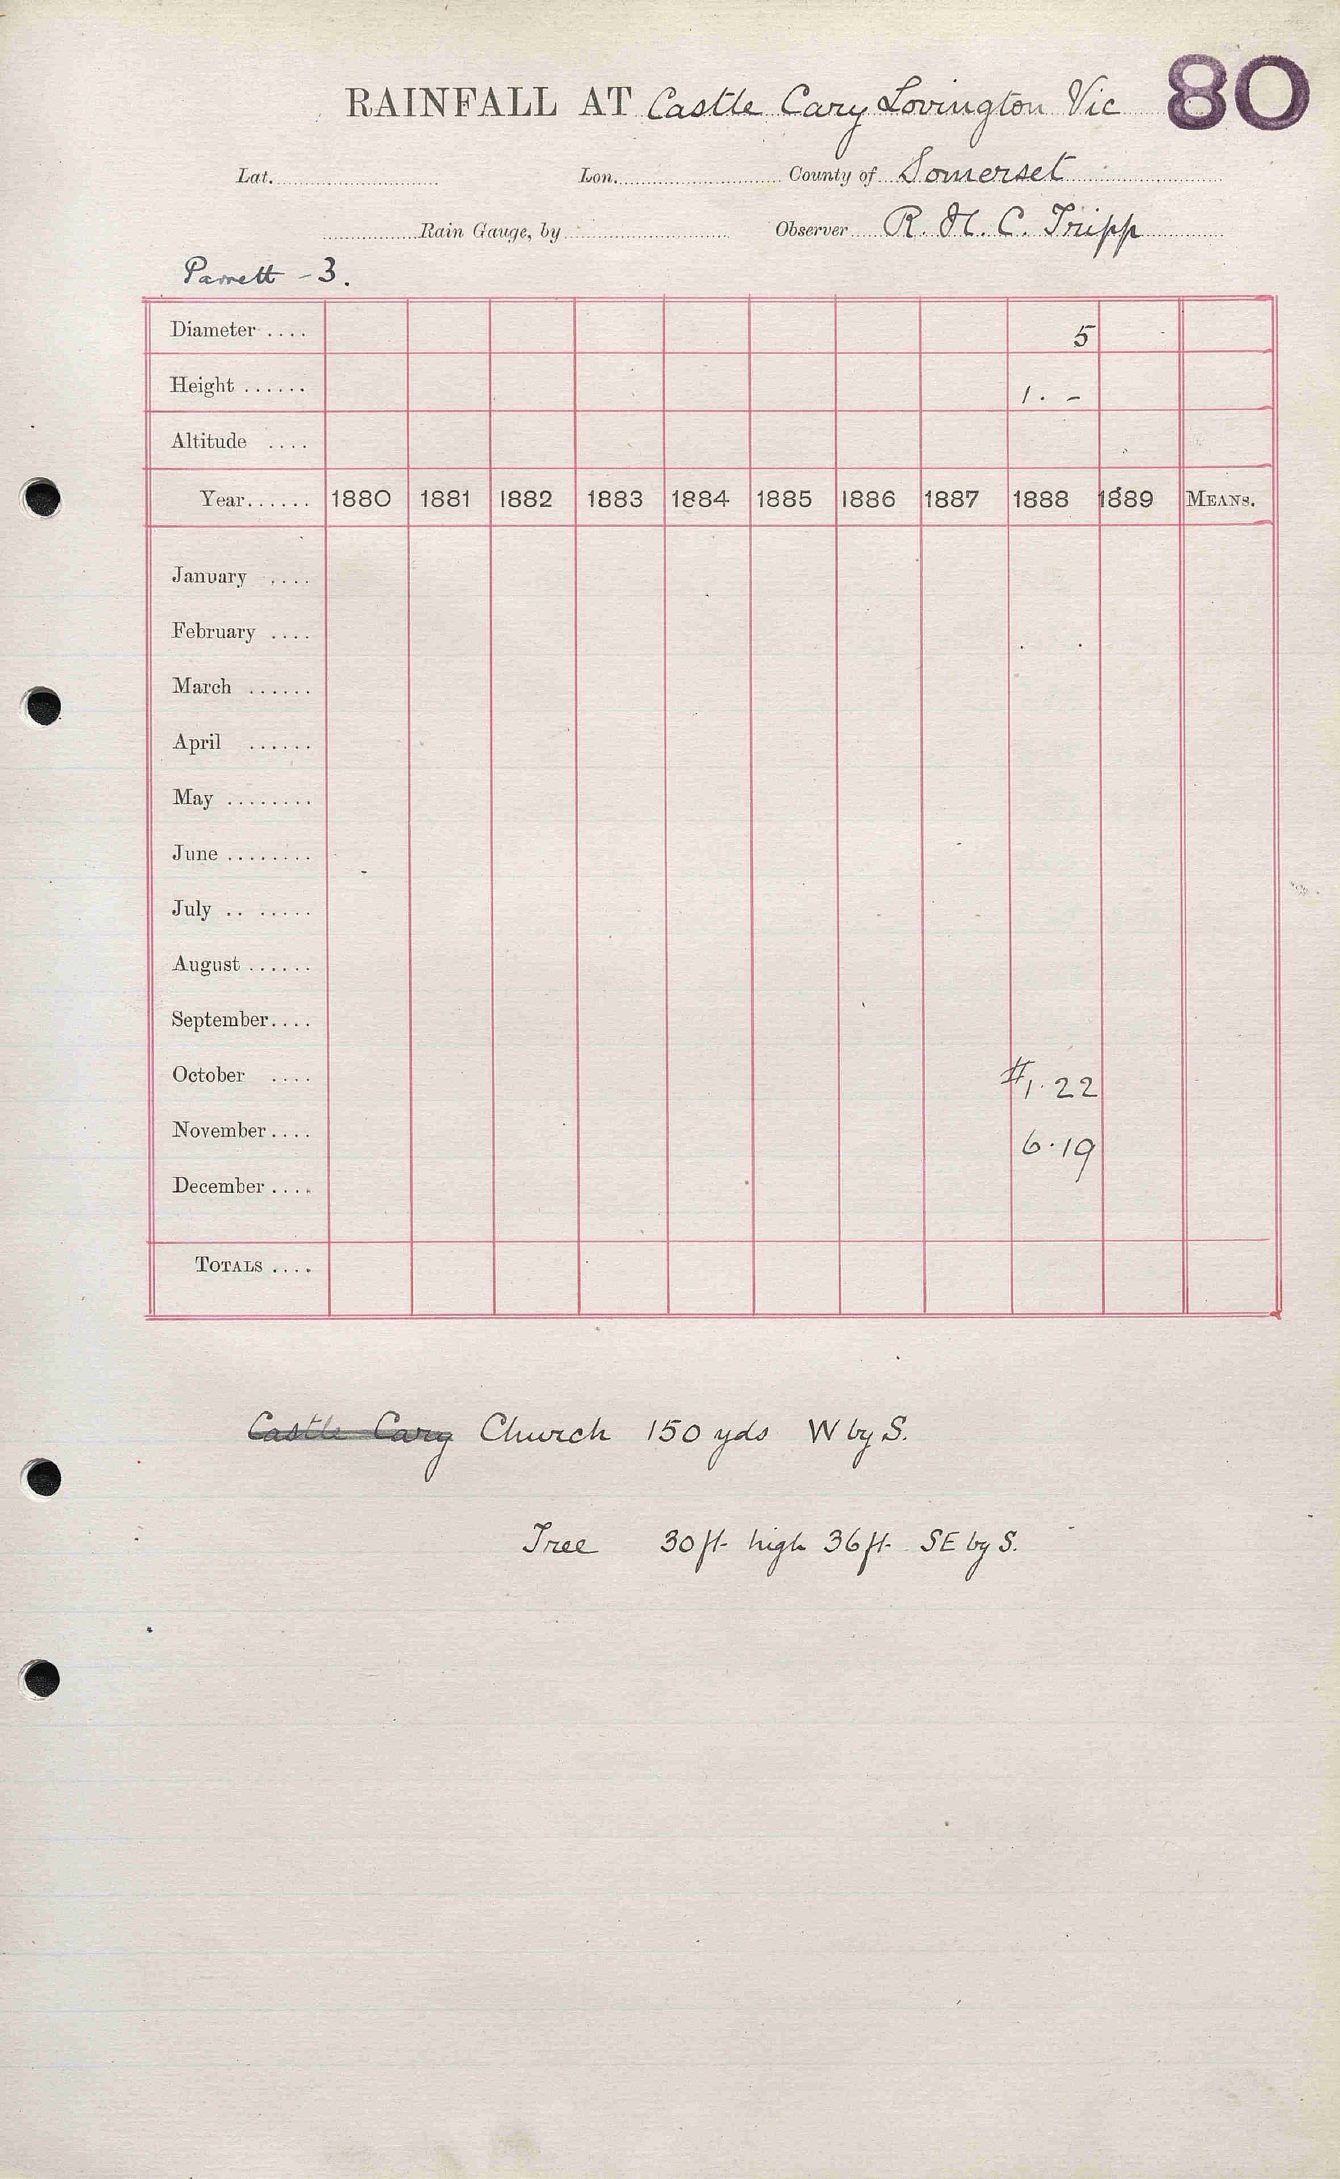 RAINFALL AT Castle Cary Lovington Vic 80
Lat. Lon. County of Somerset
Rain Gauge, by Observer R. H. C. Tripp
Parrett - 3.
Diameter .... 5
Height ...... 1. -
Altitude ....
Year...... 1880 1881 1882 1883 1884 1885 1886 1887 1888 1889 MEANS.
January ....
February ....
March ......
April ......
May ........
June ........
July .. .....
August ......
September....
October .... #1.22
November.... 6.19
December ....
TOTALS ....
Castle Cary Church 150 yds W by S.
Tree 30ft high 36ft SE by S.